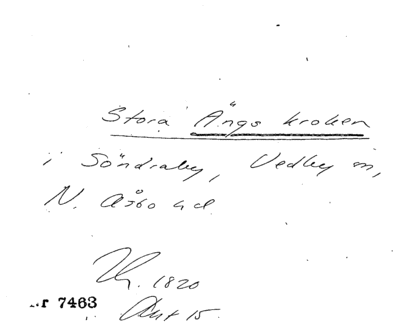 Stora Ängs kroken
i Söndraby, Vedby sn,
N. Åsbo hd
1820
Nr 7463
Akt 15.